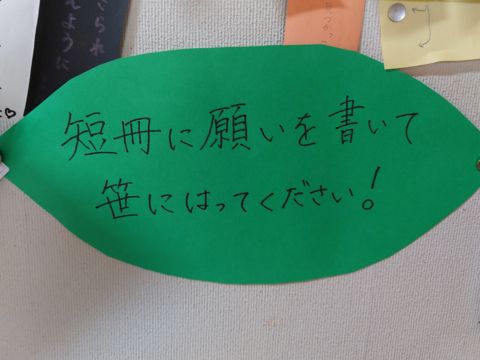 短冊に願いを書いて
笹にはってください！